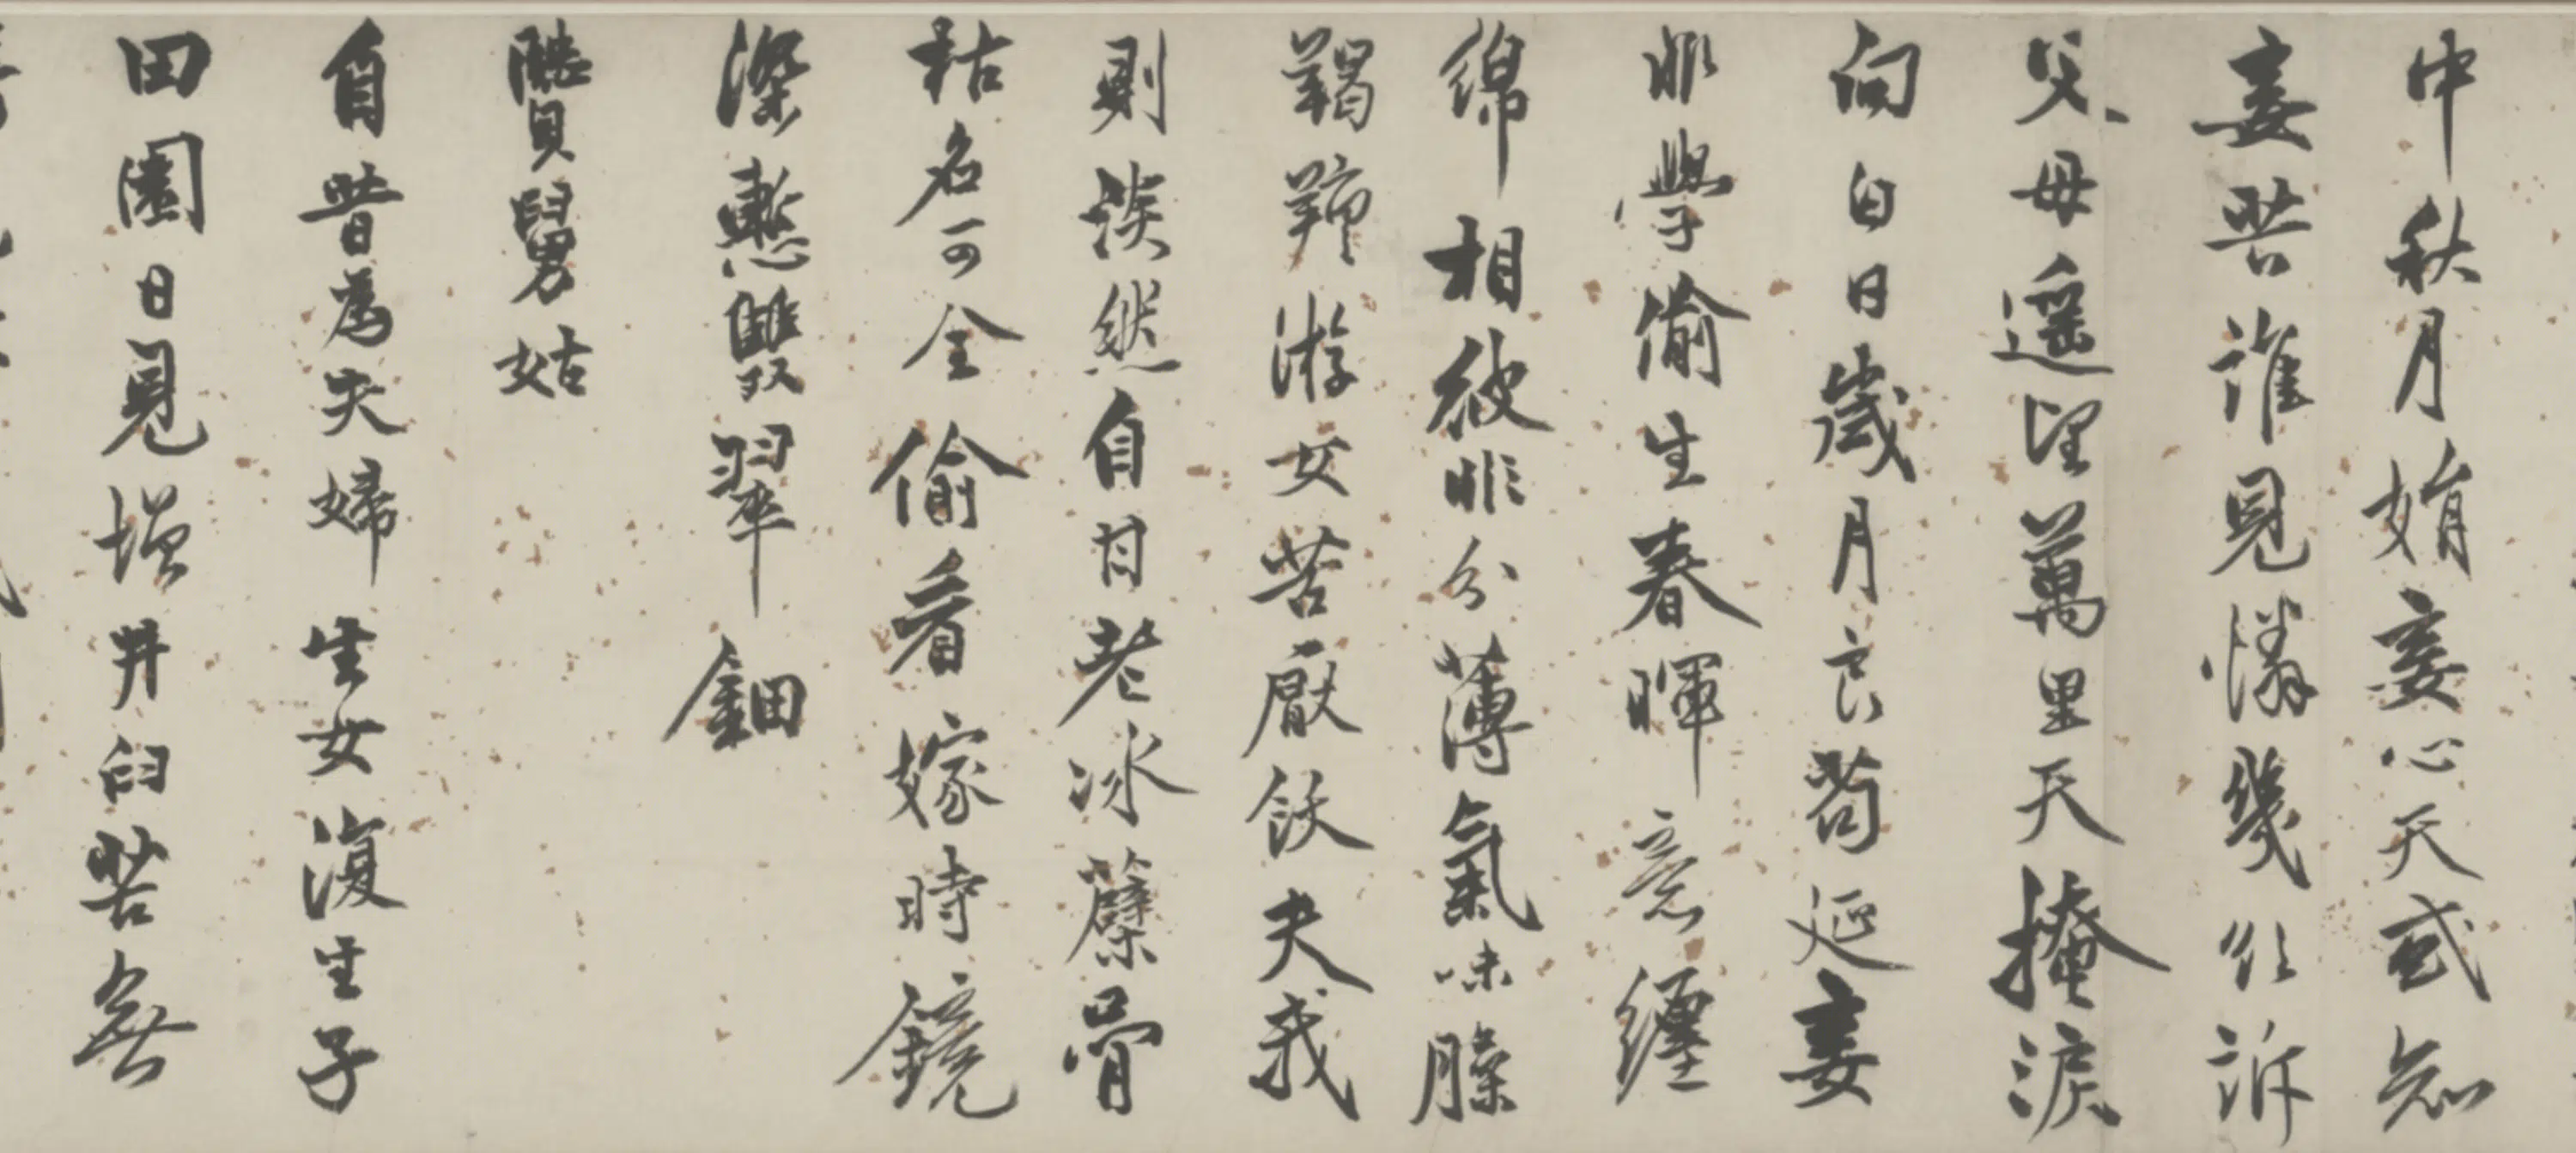 中秋月娟妾心天或知
妾苦誰見憐幾欲訴
父母遥望萬里天掩淚
向白日歲月良苟延妾
非學偷生春暉意纏
綿相彼非分薄氣味臊
羯羶游女苦厭飫夫我
則淡然自甘老冰蘗骨
枯名可全偷看嫁時鏡
深慙雙翠鈿
贒舅姑
自昔為夫婦生女復生子
田園日見增井臼苦無